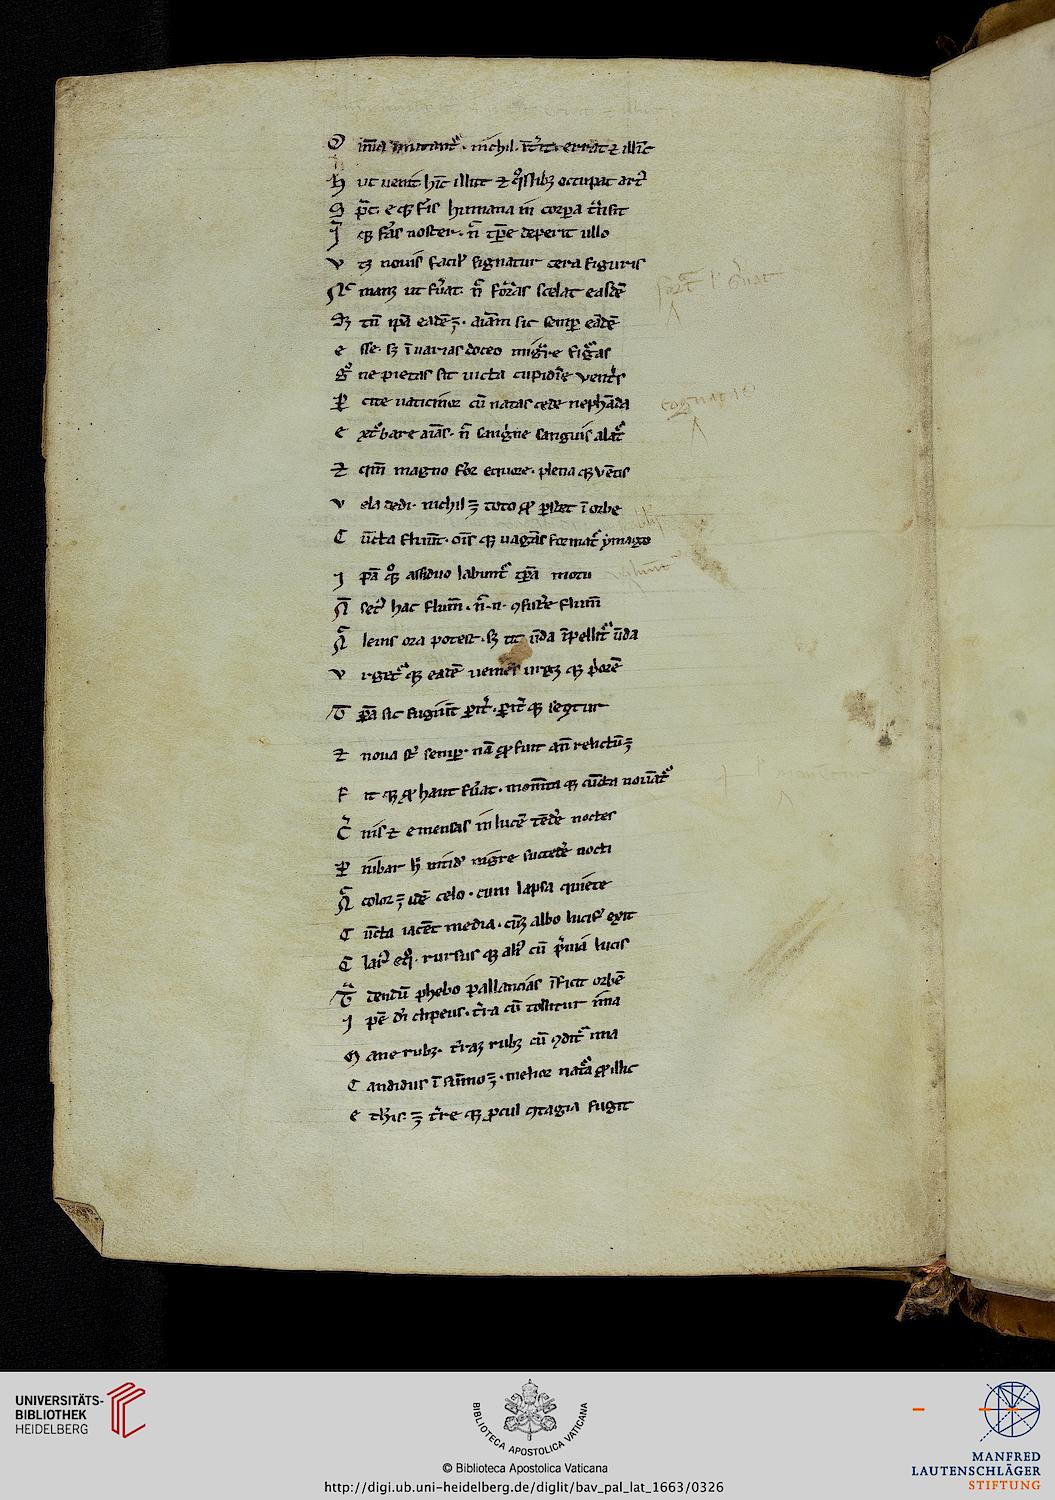 O mnia mutant᷑ . nichil . int̾it. errat ⁊ illīc
H uc uenit hīc illuc ⁊ q̊slibꝫ occupat art᷒
S pc̄. eqꝫ f̾is humana in corꝑa t̾nsit
I qꝫ f̾as noster . n̄ tp̄e deperit ullo
V tqꝫ nouis facil᷒ signatur cera figuris
N ec manꝫ ut fu̾at . n̄ formas ẜuat easdē
S ꝫ tn̄ ip̄a eadē ē . aīam sic semꝑ eādē
e sse . sꝫ ī uarias doceo migr̾e figuras
g̊ ne pietas sit uicta cupidīe uent̾s
P cite uaticinor cū natas cede nephāda
e xt᷑bare aīas . n̄ sangⁱne sanguis alat᷑
⁊ qm̄ magno feror equore . plenaqꝫ uētis
V ela dedi . nichil ē toto qđ ꝑstet ī orbe
C ūcta fluūt . oīsqꝫ uagās format᷑ ymago
I pā qꝫ assiduo labunt᷑ tp̄a motu
N̄ sec᷒ hac flum̄ . n̄ .n. ꝯsist̾e flum̄
N̄ leuis ora potest . sꝫ ut ūda īpellit᷑ ūda
V rget᷑qꝫ eadē ueniēs urgꝫqꝫ p̾orē
T pā sic fugiūt pit̾ . pit̾qꝫ seqtur
⁊ noua st̄ semꝑ . nā qđ fuit an̄ relictū ē
F itqꝫ qđ haut fu̾at . momītaqꝫ cūcta nouāt᷑
C̾nis ⁊ emensas in lucē tēd̾e noctes
⁊ iubar h̄ nitid᷒ nigre succed̾e nocti
N̄ color ē idē celo . cum lapsa quiete
C ūcta iacēt media . cūqꝫ albo lucif̾ exit
C lar᷒ eq̊ . rursusqꝫ ali᷒ cū p̾uia lucis
T dendū phebo pallancias īficit orbē
I pē di̾ clipeus . t̾ra cū tollitur īma
M ane rubꝫ . t̾raqꝫ rubꝫ cū ꝯdit᷑ ima
C andidus ī sūmo ē . melior nat᷑a qđ illic
e th̾is ē t̾reqꝫ ꝓcul ꝯtagia fugit
UNIVERSITÄTS-
BIBLIOTHEK
HEIDELBERG
BIBLIOTECA APOSTOLICA VATICANA
© Biblioteca Apostolica Vaticana
http://digi.ub.uni-heidelberg.de/diglit/bav_pal_lat_1663/0326
MANFRED
LAUTENSCHLÄGER
STIFTUNG